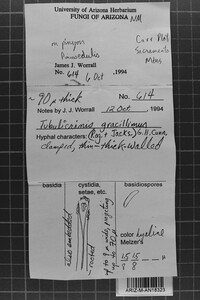 University of Arizona Herbarium
FUNGI OF ARIZONA NM
on pinyon
Carr Plot
Sacramento
Mtns
James J. Worrall
No. 614 6 Oct, 1994
90 µ thick No. 614
Notes by J. J. Worrall 12 Oct, 1994
Tubulicrinis gracillimus
(Rog. + Jacks.) G.H. Cunn.
clamped, thin-thick-walled
basidia
cystidia,
setae, etc.
basidiospores
also embedded
rooted
up to 70 µ
color hyaline
Melzer's
ARIZ-M-AN18323